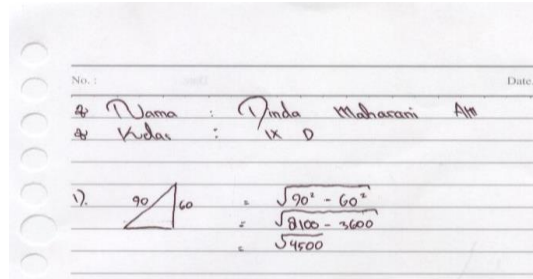 No. :
Date.
Nama : Dinda Maharani
Kelas : IX D
1). 90 60 = √90² - 60²
= √8100 - 3600
= √4500